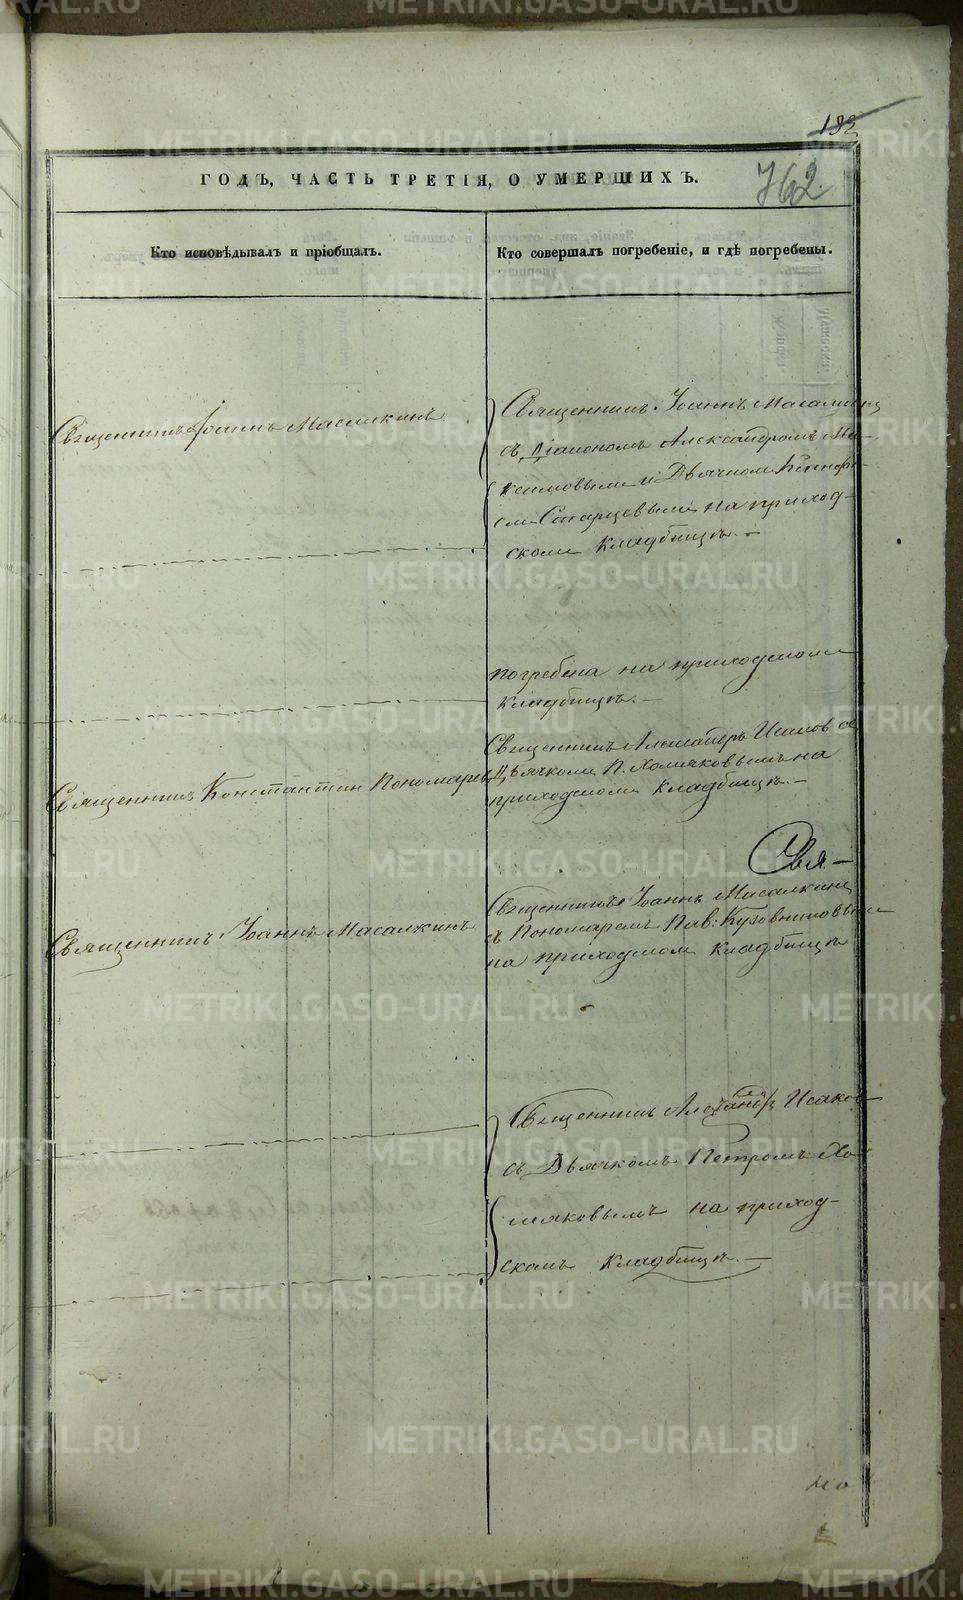 182
ГОДЪ, ЧАСТЬ ТРЕТІЯ, О УМЕРШИХЪ.
762.
Кто исповѣдывалъ и пріобщалъ.
Кто совершалъ погребеніе, и гдѣ погребены.
Священникъ Іоаннъ Масалкинъ
Священникъ Іоаннъ Масалкинъ
съ Діакономъ Александромъ Ма-
ксимовымъ и Дьячкомъ
Старцовымъ на приход-
скомъ кладбищѣ.–
погребена на приходскомъ
кладбищѣ.–
Священникъ Константинъ Пономаревъ
Священникъ Александръ Исаковъ съ
Дьячкомъ П. Хомяковымъ на
приходскомъ кладбищѣ.–
Свя–
Священникъ Іоаннъ Масалкинъ
Священникъ Іоаннъ Масалкинъ
съ Пономаремъ Пав: Кузовниковымъ
на приходскомъ кладбищѣ
Священникъ Александръ Исаковъ
съ Дьячкомъ Петромъ Хо-
мяковымъ на приход-
скомъ кладбищѣ.–
METRIKI.GASO-URAL.RU